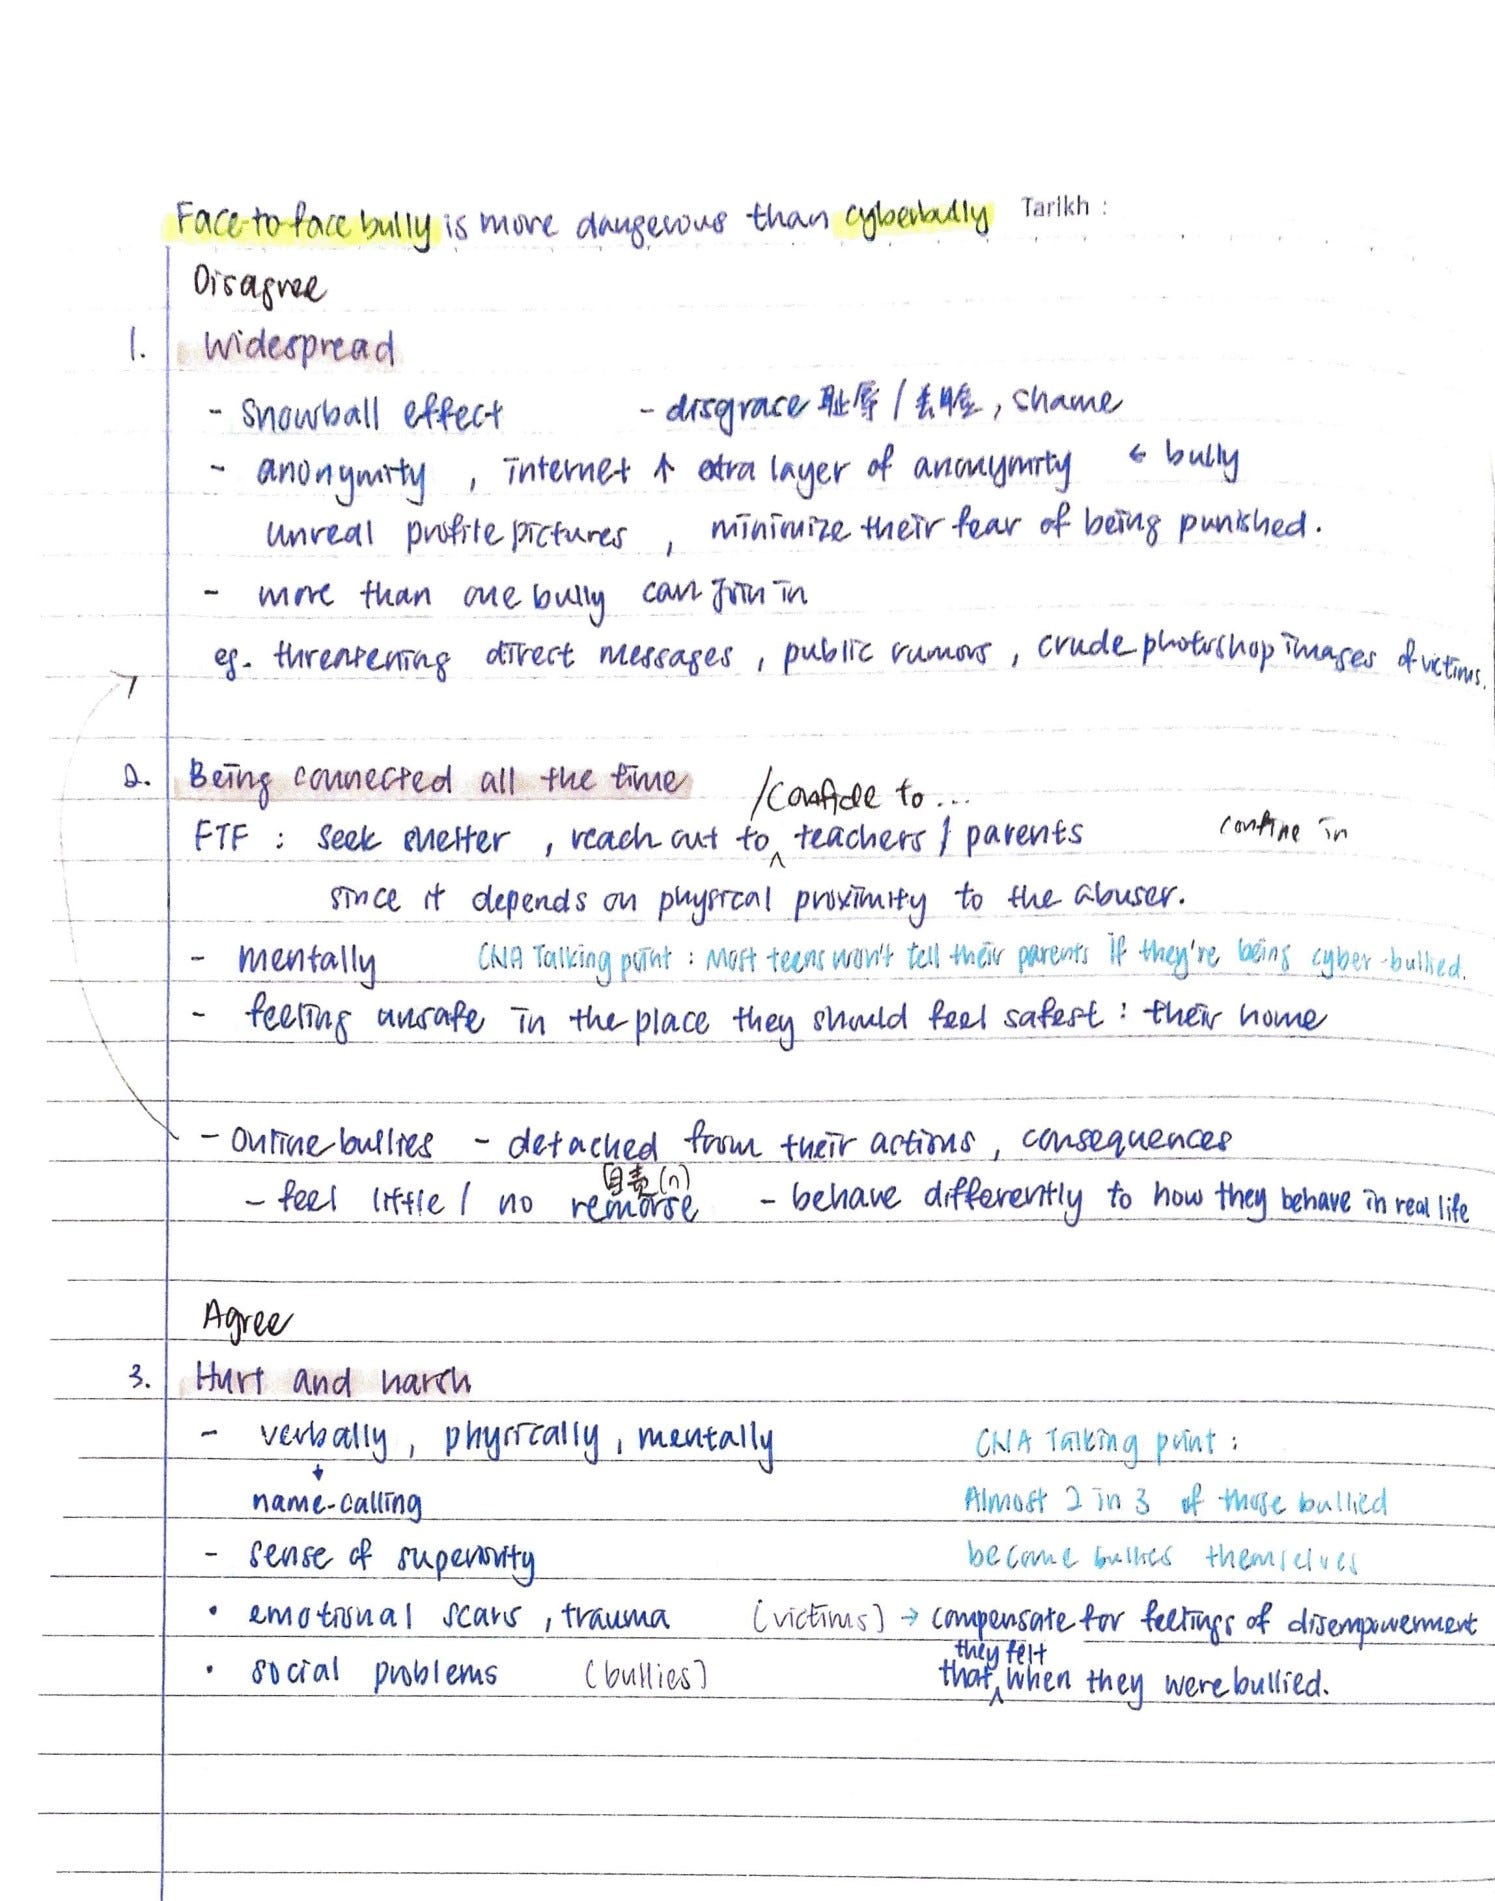 Face-to-face bully is more dangerous than cyberbully Tarikh :
Disagree
1. Widespread
- snowball effect - disgrace 耻辱 / 丢脸, shame
- anonymity , internet ↑ extra layer of anonymity ← bully
unreal profile pictures , minimize their fear of being punished.
- more than one bully can join in
eg. threatening direct messages , public rumors , crude photoshop images of victims.
2. Being connected all the time
/confide to ...
FTF : seek shelter , reach out to ^ teachers / parents confine in
since it depends on physical proximity to the abuser.
- mentally CNA Talking point : Most teens won't tell their parents if they're being cyber-bullied.
- feeling unsafe in the place they should feel safest : their home
- online bullies - detached from their actions , consequences
自责 (n)
- feel little / no remorse - behave differently to how they behave in real life
Agree
3. Hurt and harsh
- verbally , physically , mentally CNA Talking point :
↓
name-calling Almost 2 in 3 of those bullied
- sense of superiority become bullies themselves
• emotional scars , trauma (victims) → compensate for feelings of disempowerment
they felt
• social problems (bullies) that ^ when they were bullied.